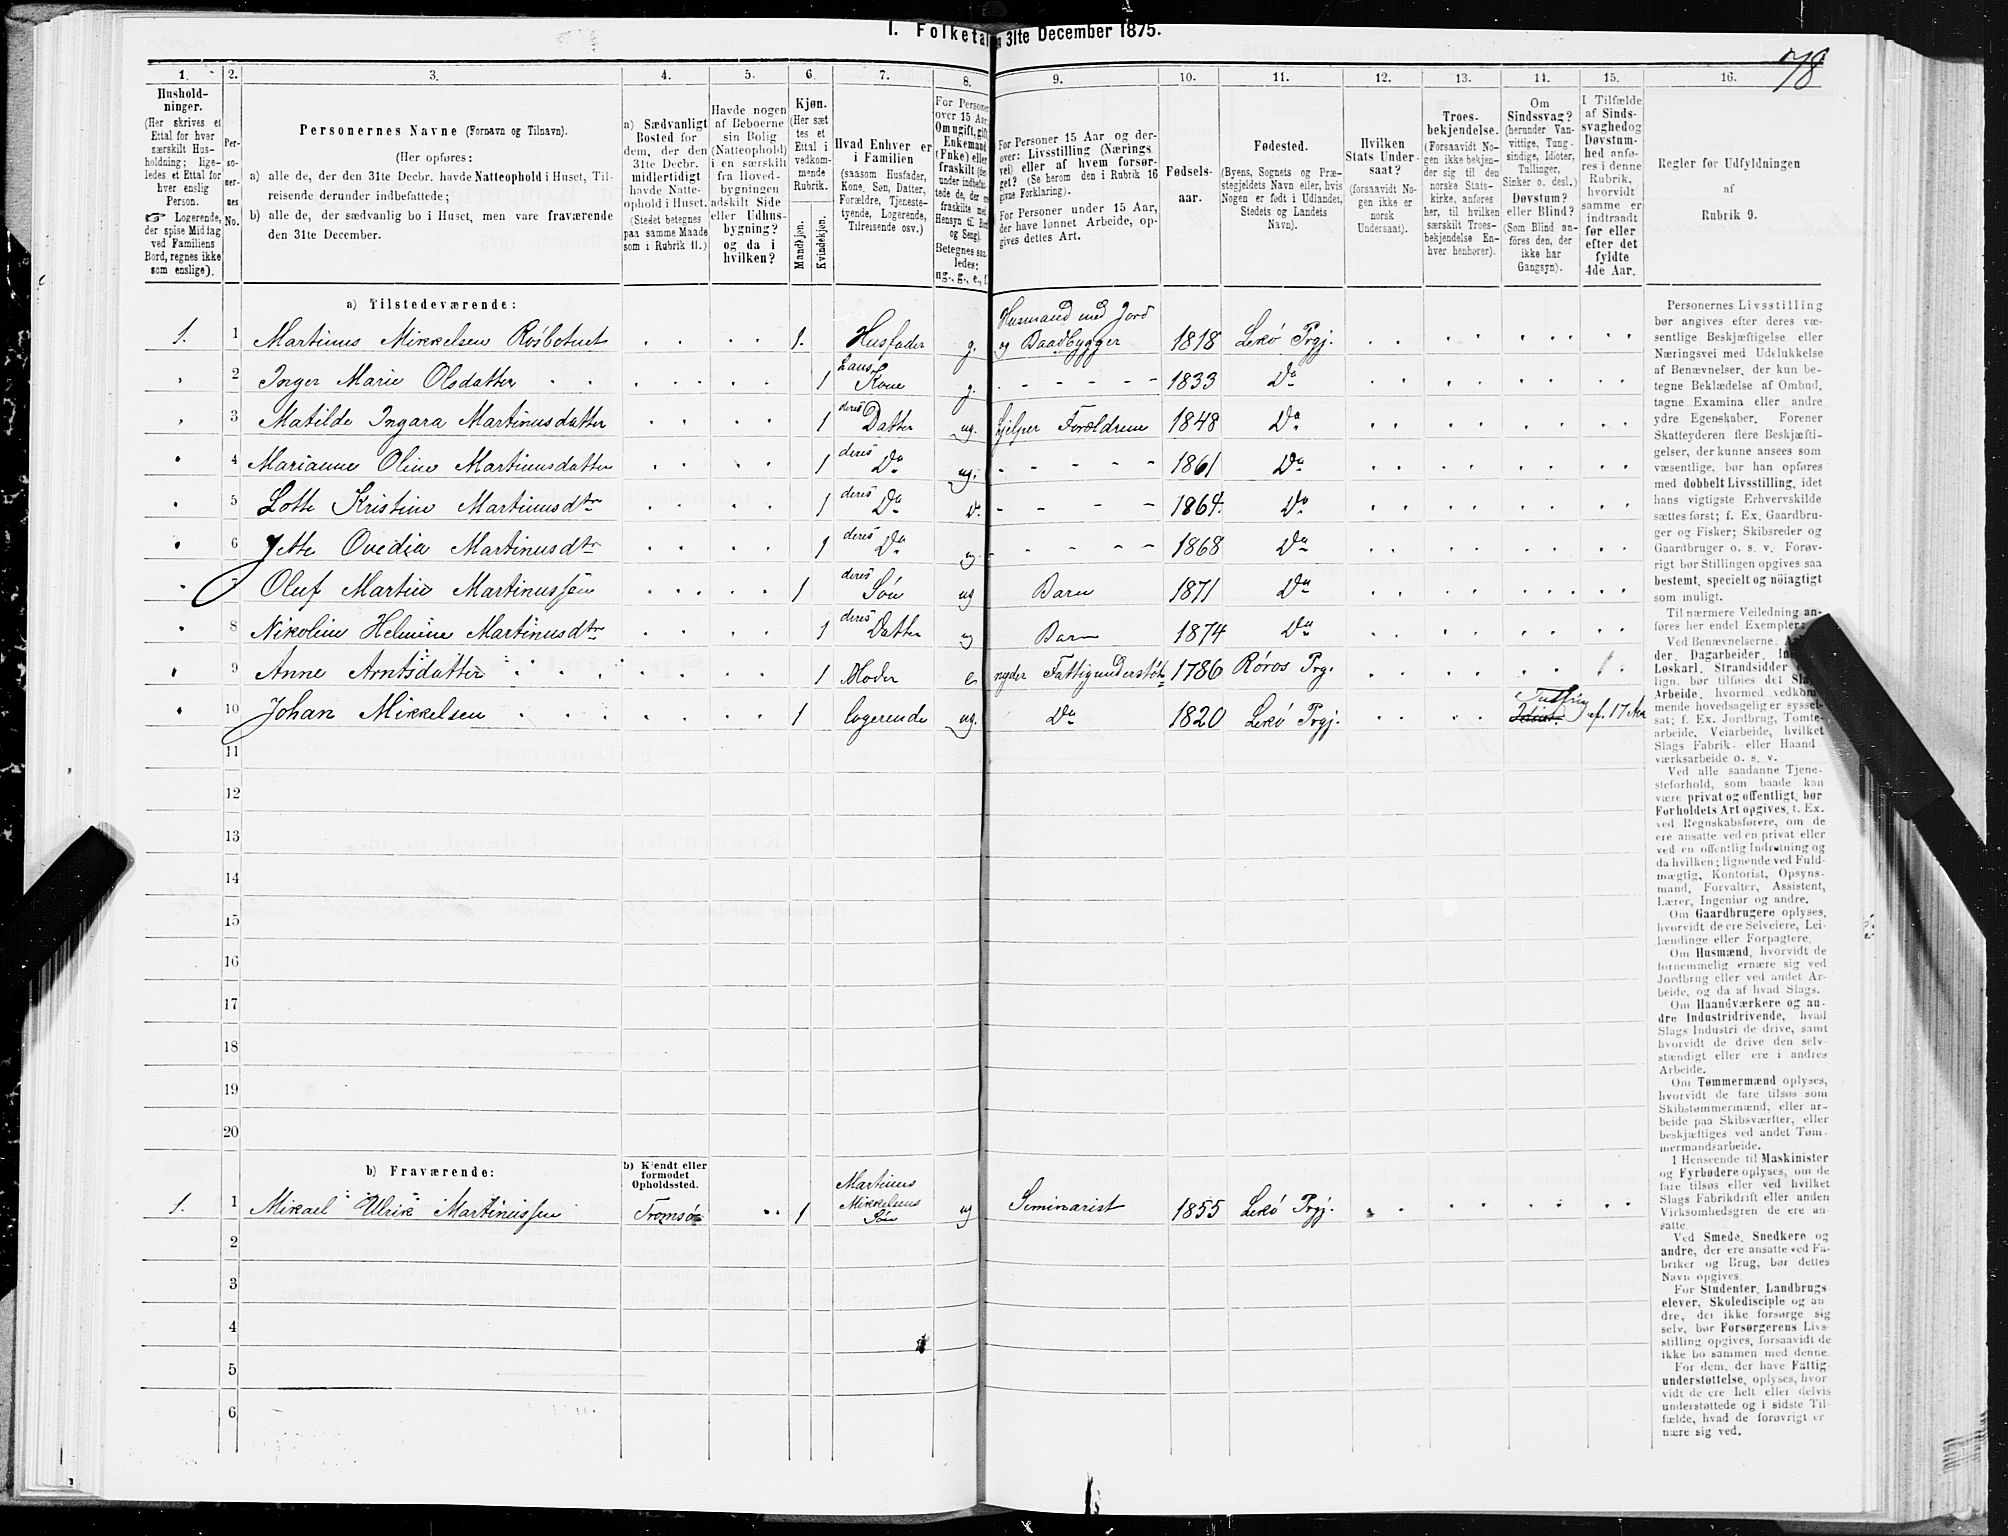 1. Folketa 31te December 1875.
78
1. 2. 3. 4. 5. 6. 7. 8. 9. 10. 11. 12. 13. 11. 15. 16.
Hushold-
ninger.
(Her skrives et
Ettal for hver
særskilt Hus-
holdning; lige-
ledes et Ettal for
hver enslig
Person.
☞ Logerende,
der spise Middag
ved Familiens
Bord, regnes ikke
som enslige).
Per-
so-
ner-
nes
No.
Personernes Navne (Fornavn og Tilnavn).
(Her opføres:
a) alle de, der den 31te Decbr. havde Natteophold i Huset, Til-
reisende derunder indbefattede;
b) alle de, der sædvanlig bo i Huset, men vare fraværende
den 31te December.
a) Sædvanligt
Bosted for
dem, der den
31te Decbr.
midlertidigt
havde Natte-
ophold i Huset.
(Stedet betegnes
paa samme Maade
som i Rubrik 11.)
Havde nogen
af Beboerne
sin Bolig
(Natteophold)
i en særskilt
fra Hoved-
bygningen
adskilt Side
eller Udhus-
bygning?
og da i
hvilken?
Kjøn.
(Her sæt
tes et
Ettal i
vedkom-
mende
Rubrik.
Mandkjøn.
Kvindekjøn.
Hvad Enhver er
i Familien
(saasom Husfader,
Kone, Søn, Datter,
Forældre, Tjeneste-
tyende, Logerende,
Tilreisende osv.)
For Personer
over 15 Aar
Om ugift, gift,
Enkemand
(Enke) eller
fraskilt (der-
under indbefat-
tede de, der ere
fraskilte med
Hensyn til Bord
og Seng).
Betegnes saa-
ledes:
ug., g., e., f.
For Personer 15 Aar og der-
over: Livsstilling (Nærings
vei) eller af hvem forsør-
get? (Se herom den i Rubrik 16
givne Forklaring).
For Personer under 15 Aar,
der have lønnet Arbeide, op-
gives dettes Art.
Fødsels-
aar.
Fødested.
(Byens, Sognets og Præ-
stegjeldets Navn eller, hvis
Nogen er født i Udlandet,
Stedets og Landets
Navn).
Hvilken
Stats Under-
saat?
(forsaavidt No-
gen ikke er
norsk
Undersaat).
Troes-
bekjendelse.
(Forsaavidt No-
gen ikke bekjen-
der sig til den
norske Stats-
kirke, anføres
her, til hvilken
særskilt Troes-
bekjendelse En-
hver henhører).
Om
Sindssvag?
(herunder Van-
vittige, Tung-
sindige, Idioter,
Tullinger,
Sinker o. desl.)
Døvstum?
eller Blind?
(Som Blind an-
føres den, der
ikke har
Gangsyn).
I Tilfælde
af Sinds-
svaghed og
Døvstum-
hed anfø-
res i denne
Rubrik,
hvorvidt
samme er
indtraadt
før eller
efter det
fyldte
4de Aar.
Regler før Udfyldningen
af
Rubrik 9.
a) Tilstedeværende:
1. 1 Martinus Mikkelsen Rösbotnet 1. Husfader g. Husmand med Jord og Baadbygger 1818 Lekø Prgj.
2 Inger Marie Olsdatter 1 hans Kone g. 1833 Do
3 Matilde Ingara Martinusdatter 1 deres Datter ug. hjelper Forældrene 1848 Do
4 Marianne Oline Martinusdatter 1 deres Do ug. 1861 Do
5 Lotte Kristine Martinusdtr 1 deres Do Do 1864 Do
6 Jette Ovedia Martinusdtr 1 deres Do ug 1868 Do
7 Oluf Martin Martinussen 1 deres Søn ug Barn 1871 Do
8 Nikoline Helmine Martinusdtr 1 deres Datter ug Barn 1874 Do
9 Anne Arntsdatter 1 Moder e nyder Fattigunderstøt 1786 Røros Prg.
10 Johan Mikkelsen 1 logerende ug. Do 1820 Lekø Prgj. Tulling Idiot. ef. 17 Aar
11
12
13
14
15
16
17
18
19
20
b) Fraværende:
b) Kjendt eller
formodet
Opholdssted.
1. 1 Mikael Ulrik Martinussen Tromsø 1 Martinus Mikkelsens Søn ug Seminarist 1855 Lekø Prgj.
2
3
4
5
6
Personernes Livsstilling
bør angives efter deres væ-
sentlige Beskjæftigelse eller
Næringsvei med Udelukkelse
af Benævnelser, der kun be-
tegne Beklædelse af Ombud,
tagne Examina eller andre
ydre Egenskaber. Forener
Skatteyderen flere Beskjæfti-
gelser, der kunne ansees som
væsentlige, bør han opføres
med dobbelt Livsstilling, idet
hans vigtigste Erhvervskilde
sættes først; f. Ex. Gaardbru-
ger og Fisker; Skibsreder og
Gaardbruger o. s. v. Forøv-
rigt bør Stillingen opgives saa
bestemt, specielt og nöiagtigt
som muligt.
Til nærmere Veiledning an-
føres her endel Exempler:
Ved Benævnelserne,
der, Dagarbeider,
Løskarl, Strandsidder
lign. bør tilføies det
Arbeide, hvormed vedkom-
mende hovedsagelig er syssel-
sat; f. Ex. Jordbrug, Tomte-
arbeide, Veiarbeide, hvilket
Slags Fabrik- eller Haand
værksarbeide o. s. v.
Ved alle saadanne Tjene-
steforhold, som baade kan
være privat og offentligt, bør
Forholdets Art opgives, t. Ex.
ved Regnskabsførere, om de
ere ansatte ved en privat eller
ved en offentlig Indretning og
da hvilken; lignende ved Fuld-
mægtig, Kontorist, Opsyns-
mand, Forvalter, Assistent,
Lærer, Ingeniør og andre.
Om Gaardbrugere oplyses,
hvorvidt de ere Selveiere, Lei-
lændinge eller Forpagtere.
Om Husmænd, hvorvidt de
fornemmelig ernære sig ved
Jordbrug eller ved andet Ar-
beide, og da af hvad Slags.
Om Haandværkere og an-
dre Industridrivende, hvad
Slags Industri de drive, samt
hvorvidt de drive den selv-
stændigt eller ere i andres
Arbeide.
Om Tømmermænd oplyses,
hvorvidt de fare tilsøs som
Skibstømmermænd, eller ar-
beide paa Skibsværfter, eller
beskjæftiges ved andet Tøm-
mermandsarbeide.
I Henseende til Maskinister
og Fyrbødere oplyses, om de
fare tilsøs eller ved hvilket
Slags Fabrikdrift eller anden
Virksomhedsgren de ere an-
satte.
Ved Smede, Snedkere og
andre, der ere ansatte ved Fa-
briker og Brug, bør dettes
Navn opgives.
For Studenter, Landbrugs
elever, Skoledisciple og an
dre, der ikke forsørge sig
selv, bør Forsørgerens Livs-
stilling opgives, forsaavidt de
ikke bo sammen med denne.
For dem, der have Fattig
understøttelse, oplyses, hvor
vidt de ere helt eller delvis
understøttede og i sidste Til-
fælde, hvad de forøvrigt er
nære sig ved.